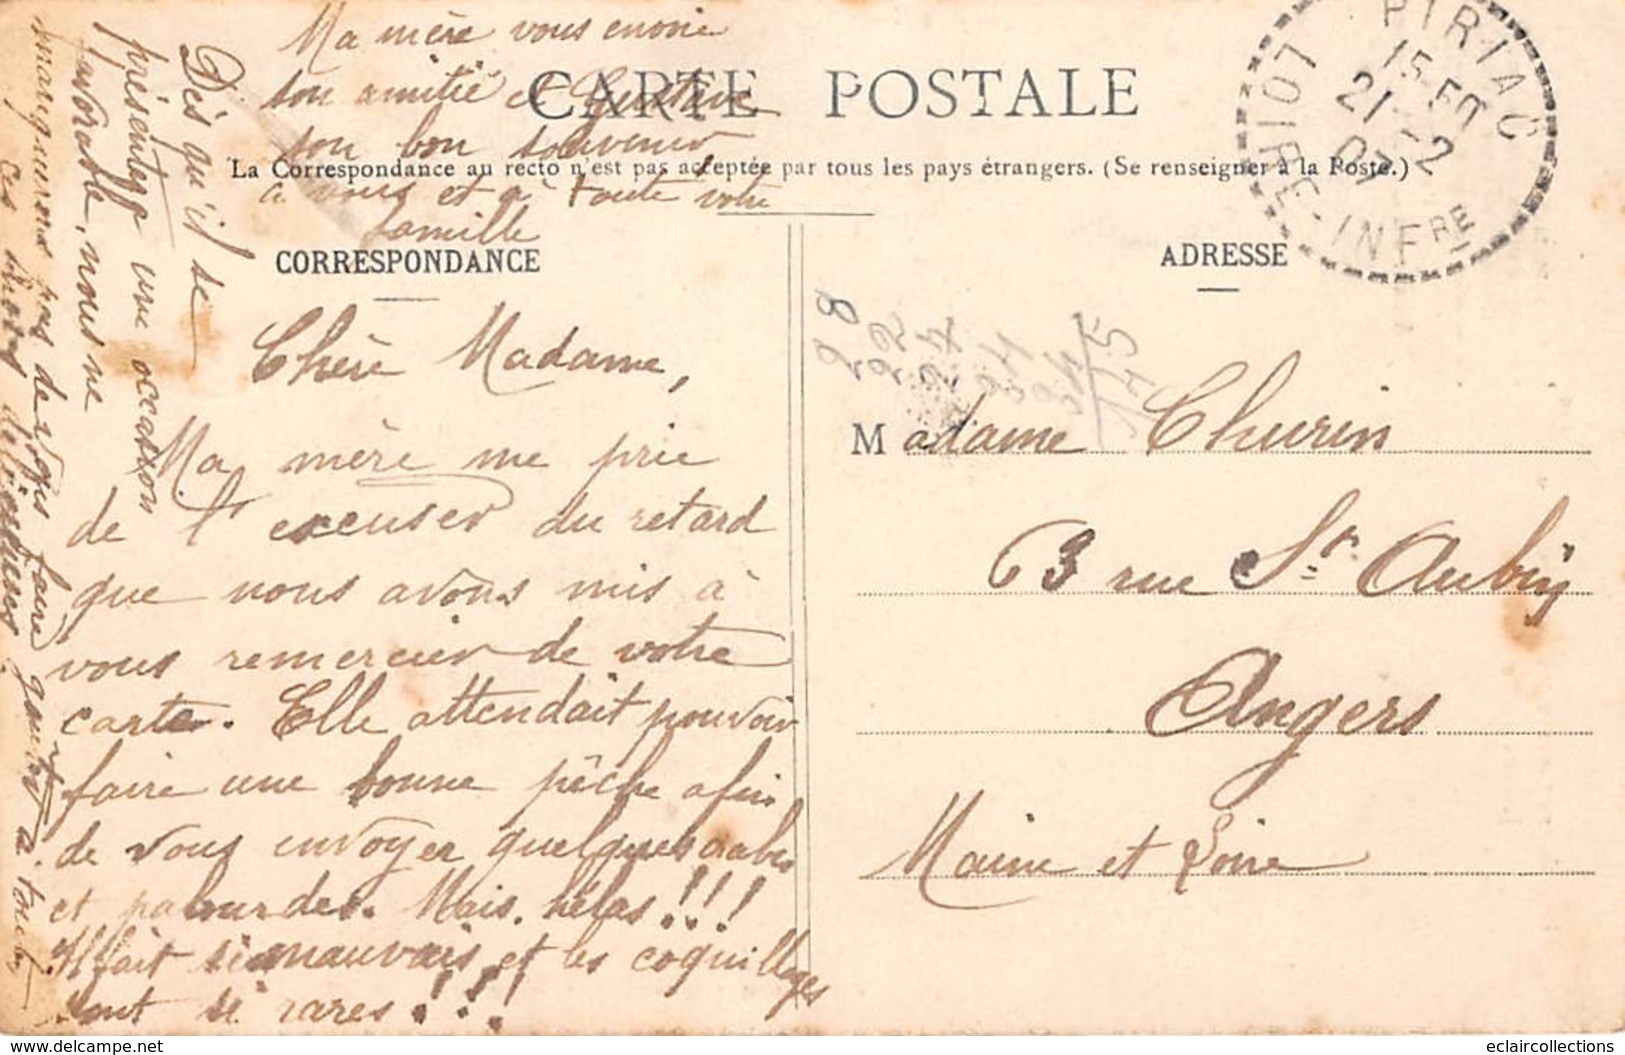 CARTE POSTALE
La Correspondance au recto n'est pas acceptée par tous les pays étrangers. (Se renseigner à la Poste.)
CORRESPONDANCE
Chère Madame,
Ma mère me prie
de l'excuser du retard
que nous avons mis à
vous remercier de votre
carte. Elle attendait pouvoir
faire une bonne pêche afin
de vous envoyer quelques crabes
et palourdes. Mais, hélas!!!
Il fait si mauvais et les coquillages
sont si rares!!!
Dès qu'il se
présentera une occasion
favorable, nous ne
manquerons pas de vous faire goûter à toutes
ces choses délicieuses
Ma mère vous envoie
son amitié et Gustave
son bon souvenir
à vous et à toute votre
famille
ADRESSE
Madame Churin
63 rue St Aubin
Angers
Maine et Loire
PIRIAC
15-50
21-2
LOIRE-INFRE
www.delcampe.net
eclaircollections